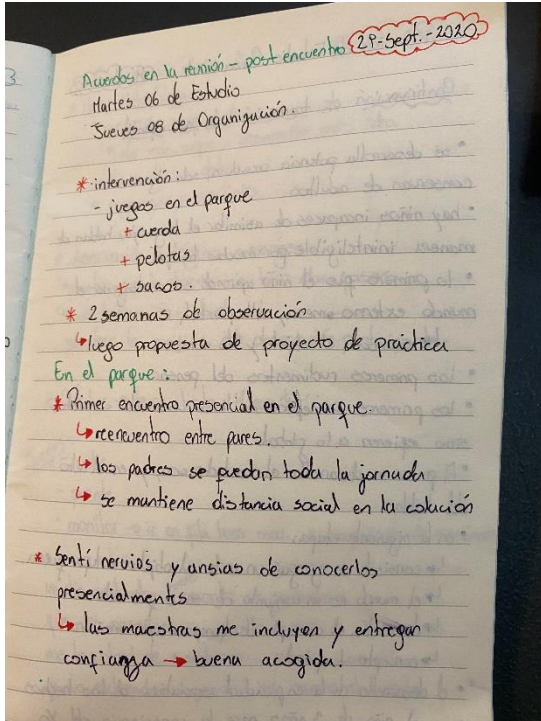 Acuerdos en la reunión - post encuentro 29-Sept.-2020
Martes 06 de Estudio
Jueves 08 de Organización.
* intervención:
- juegos en el parque
+ cuerda
+ pelotas
+ sacos.
* 2 semanas de observación
↳ luego propuesta de proyecto de práctica
En el parque:
* Primer encuentro presencial en el parque.
↳ reencuentro entre pares.
↳ los padres se quedan toda la jornada
↳ se mantiene distancia social en la colación
* Sentí nervios y ansias de conocerlos
presencialmentes
↳ las maestras me incluyen y entregan
confianza → buena acogida.